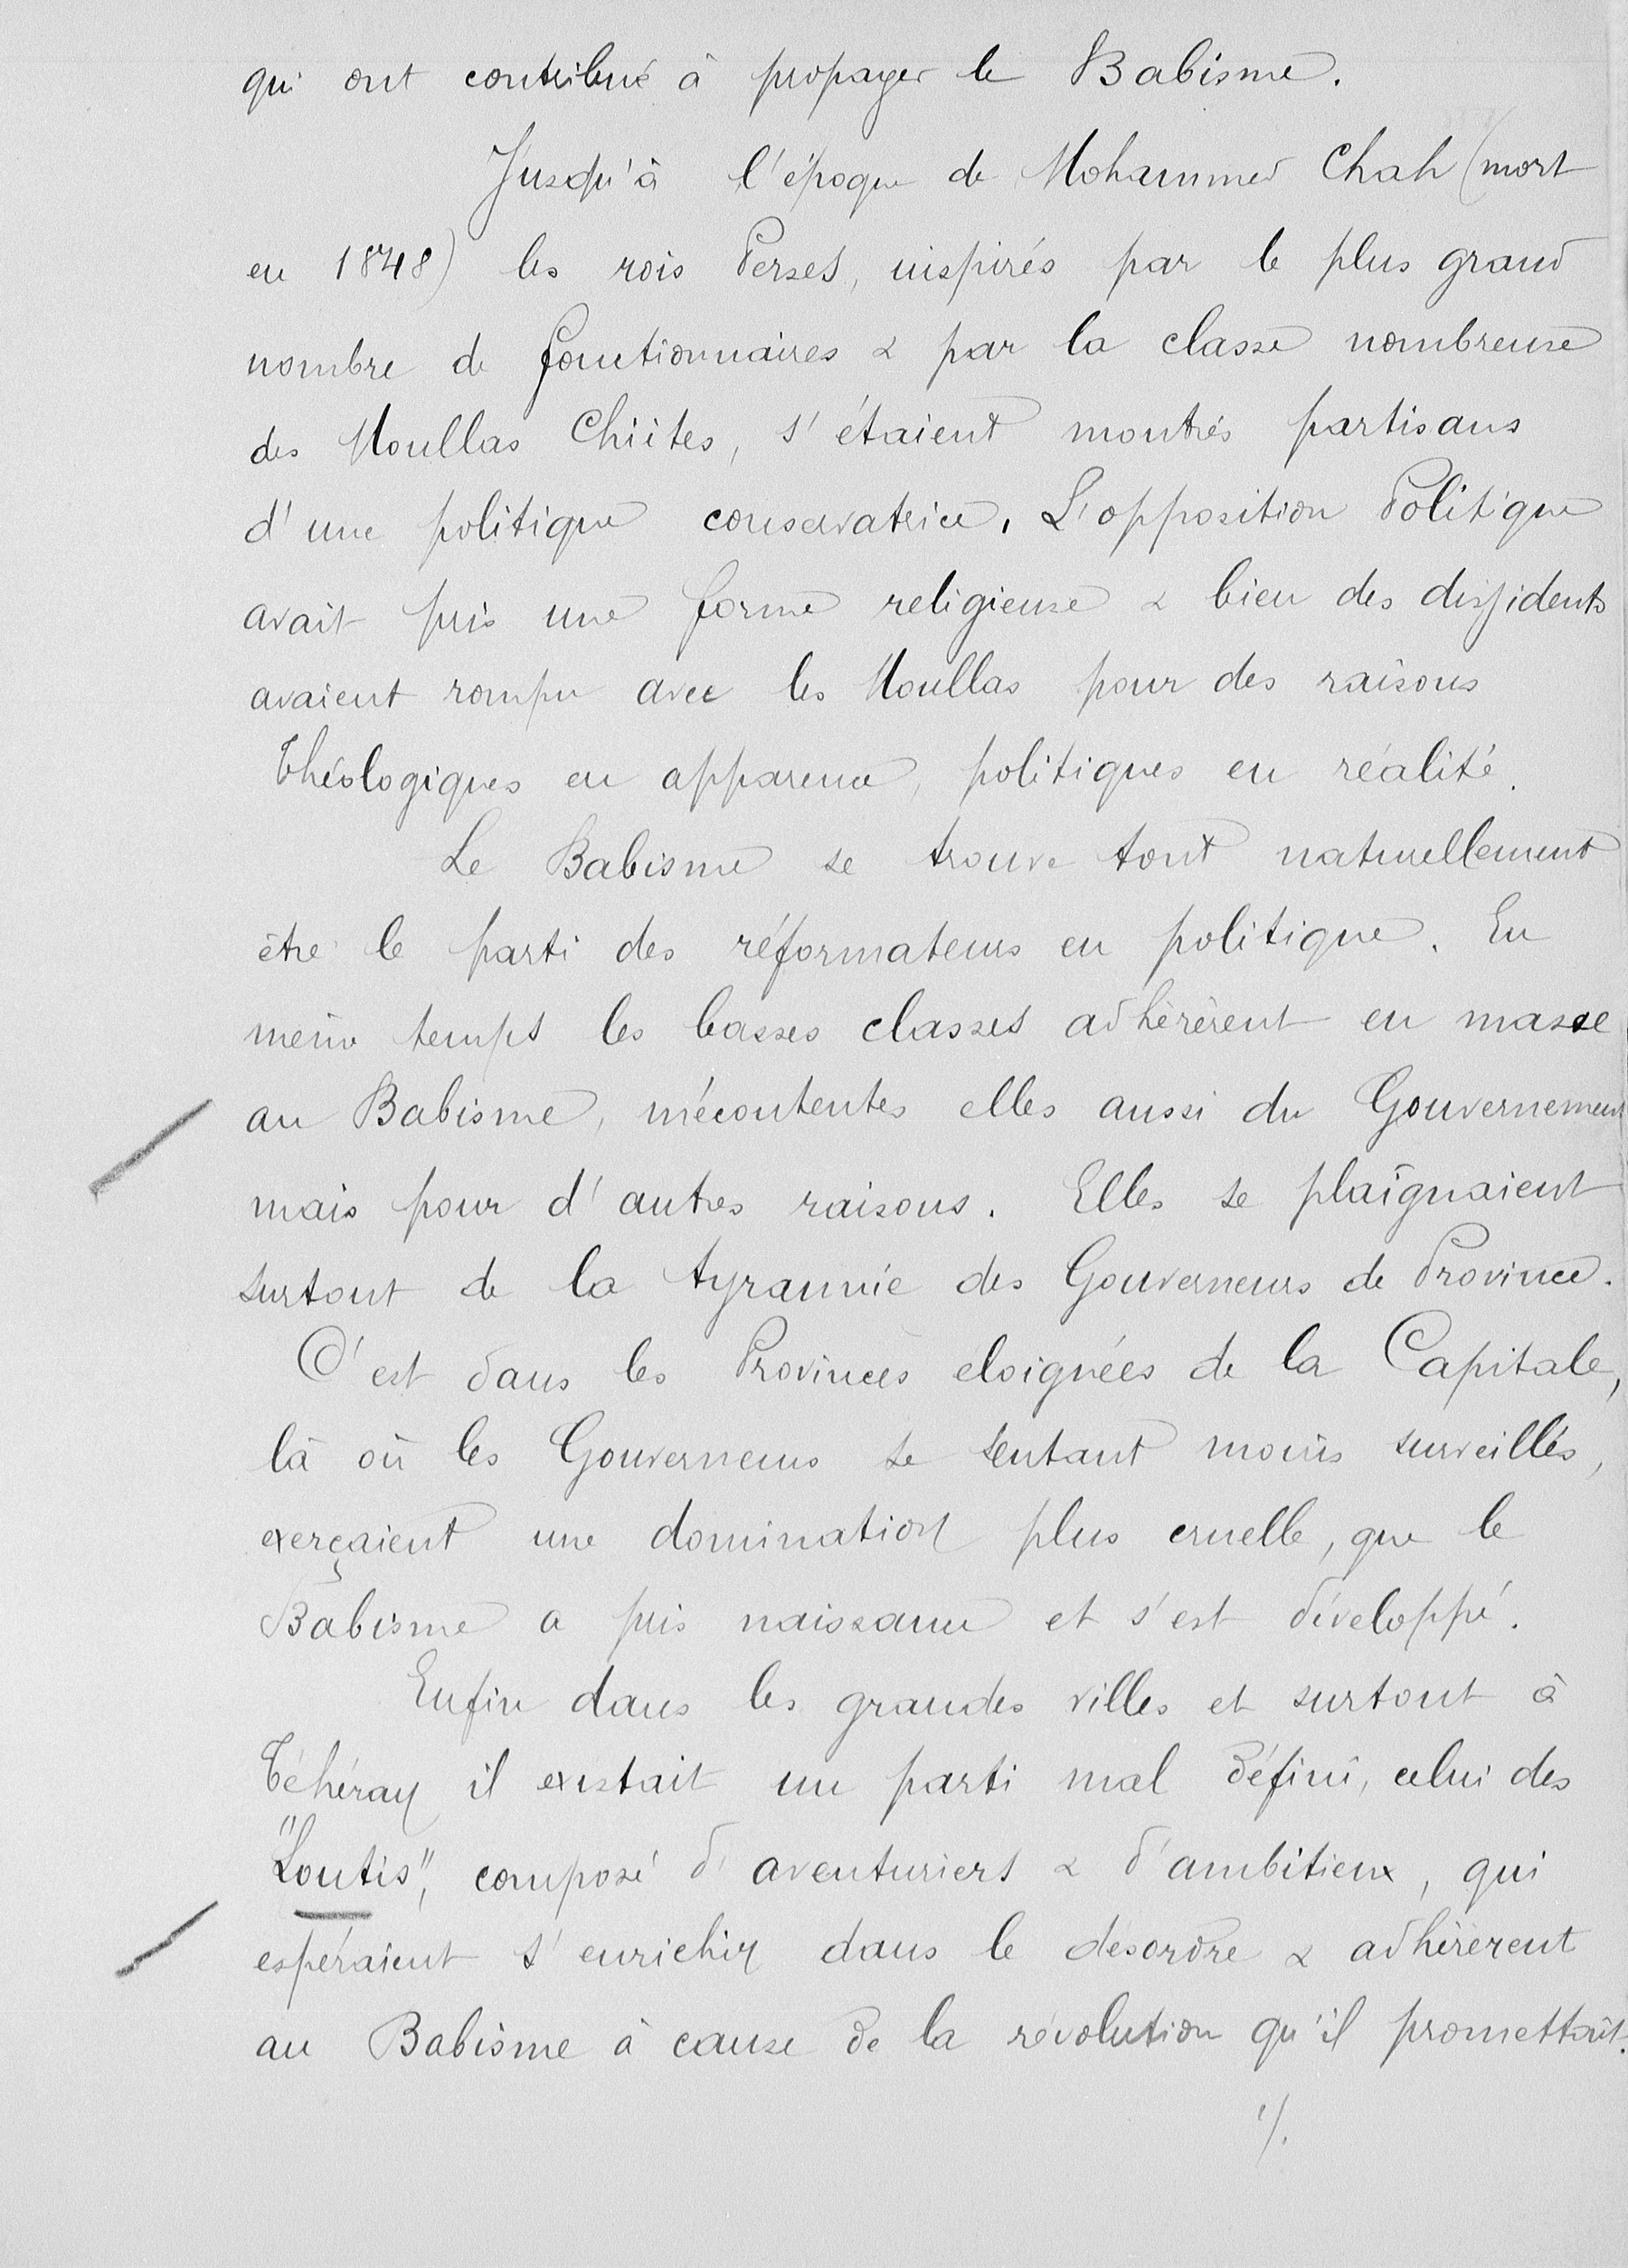 qui ont contribué à propager le Babisme.
Jusqu'à l'époque de Mohammed Chah (mort
en 1848) les rois Perses, inspirés par le plus grand
nombre de fonctionnaires & par la classe nombreuse
des Moullas Chiites, s'étaient montrés partisans
d'une politique conservatrice. L'opposition Politique
avait pris une forme religieuse & bien des dissidents
avaient rompu avec les Moullas pour des raisons
théologiques en apparence, politiques en réalité.
Le Babisme se trouve tout naturellement
être le parti des réformateurs en politique. En
même temps les basses classes adhérèrent en masse
au Babisme, mécontentes elles aussi du Gouvernement
mais pour d'autres raisons. Elles se plaignaient
surtout de la tyrannie des Gouverneurs de Province.
C'est dans les Provinces éloignées de la Capitale,
là où les Gouverneurs se sentant moins surveillés,
exerçaient une domination plus cruelle, que le
Babisme a pris naissance et s'est développé.
Enfin dans les grandes villes et surtout à
Téhéran il existait un parti mal défini, celui des
"Loutis", composé d'aventuriers & d'ambitieux, qui
espéraient s'enrichir dans le désordre & adhérèrent
au Babisme à cause de la révolution qu'il promettait.
./.